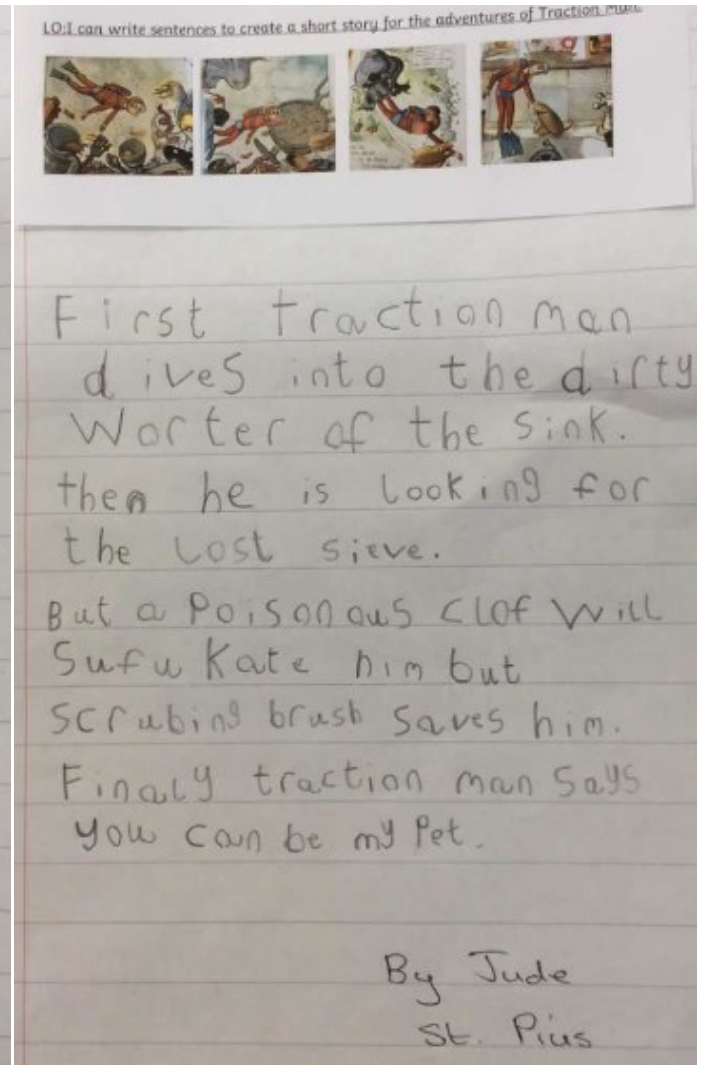 LO:I can write sentences to create a short story for the adventures of Traction Man.
First traction man
dives into the dirty
Worter of the sink.
then he is Looking for
the Lost sieve.
But a Poisonous clof will
Sufu kate him but
scrubing brush saves him.
Finaly traction man says
you can be my Pet.
By Jude
St. Pius